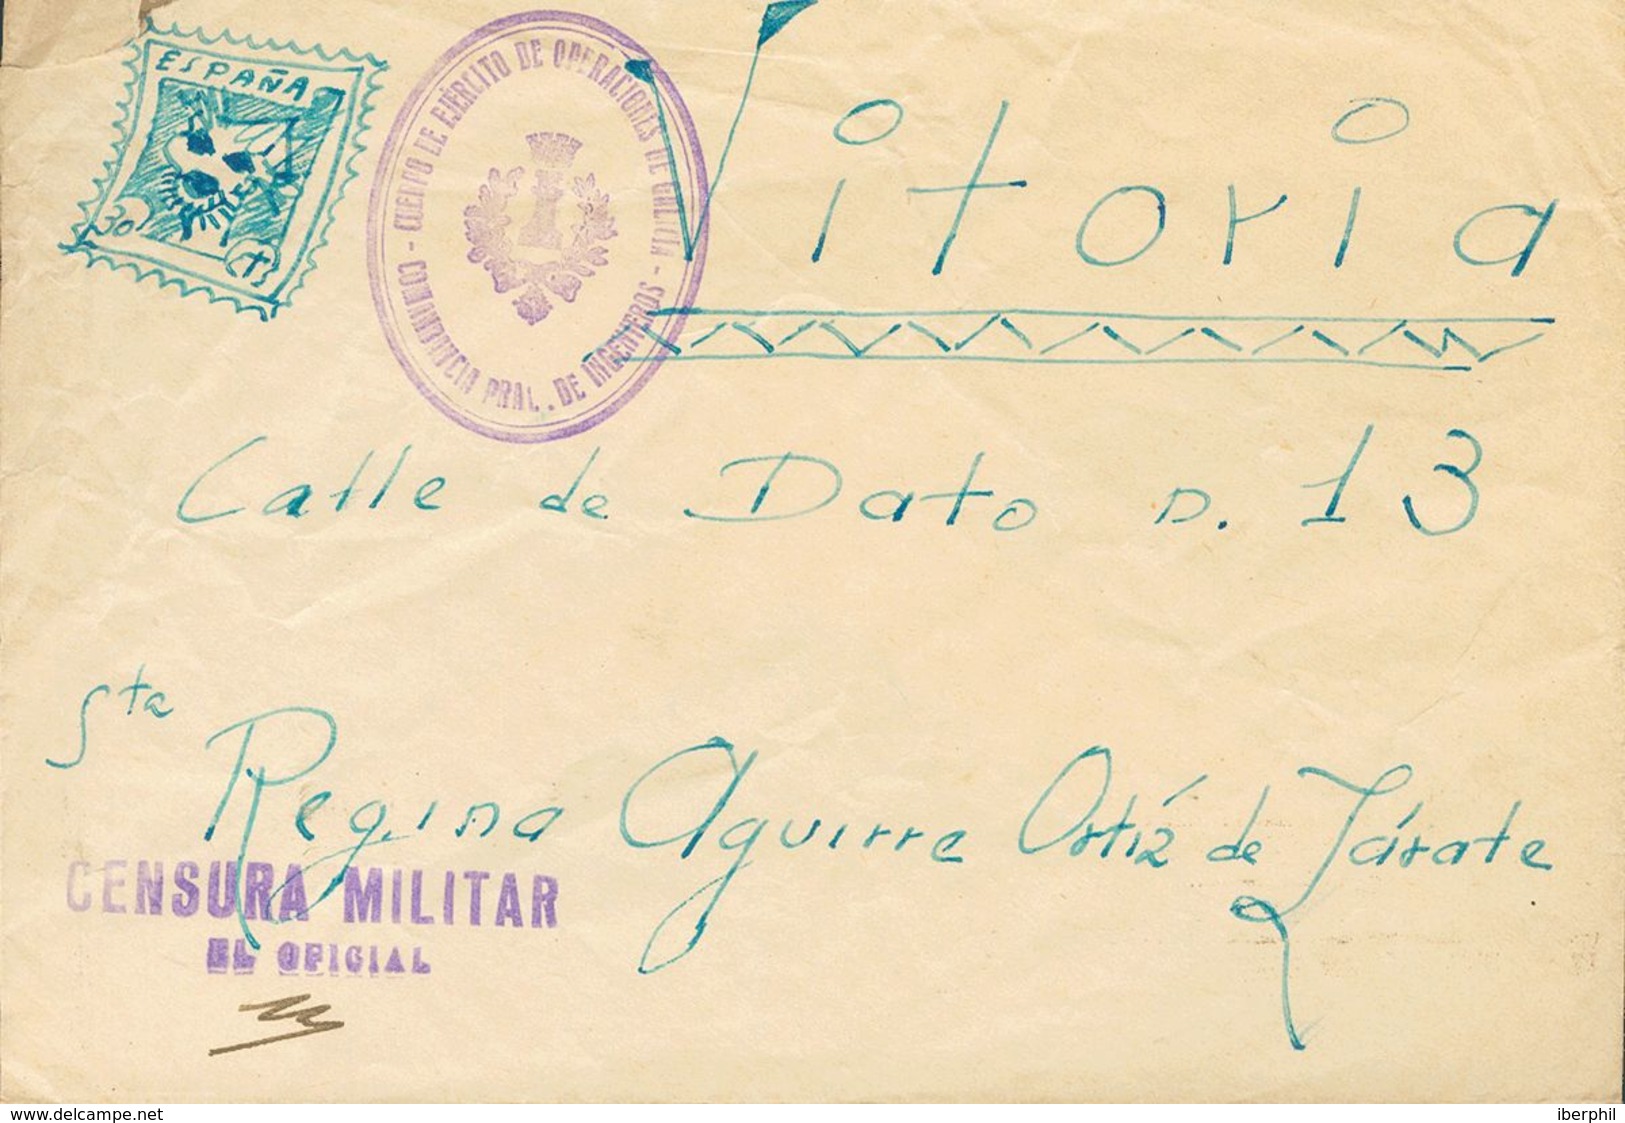 ESPAÑA
30
CUERPO DE EJÉRCITO DE OPERACIONES DE GALICIA - COMANDANCIA PRAL. DE INGENIEROS -
Vitoria
Calle de Dato n. 13
Sta Regina Aguirre Ortíz de Zárate
CENSURA MILITAR
EL OFICIAL
www.delcampe.net
iberphil